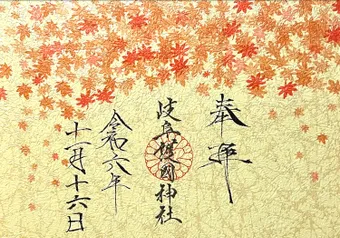 奉拝
岐阜護國神社
令和六年
十一月十六日